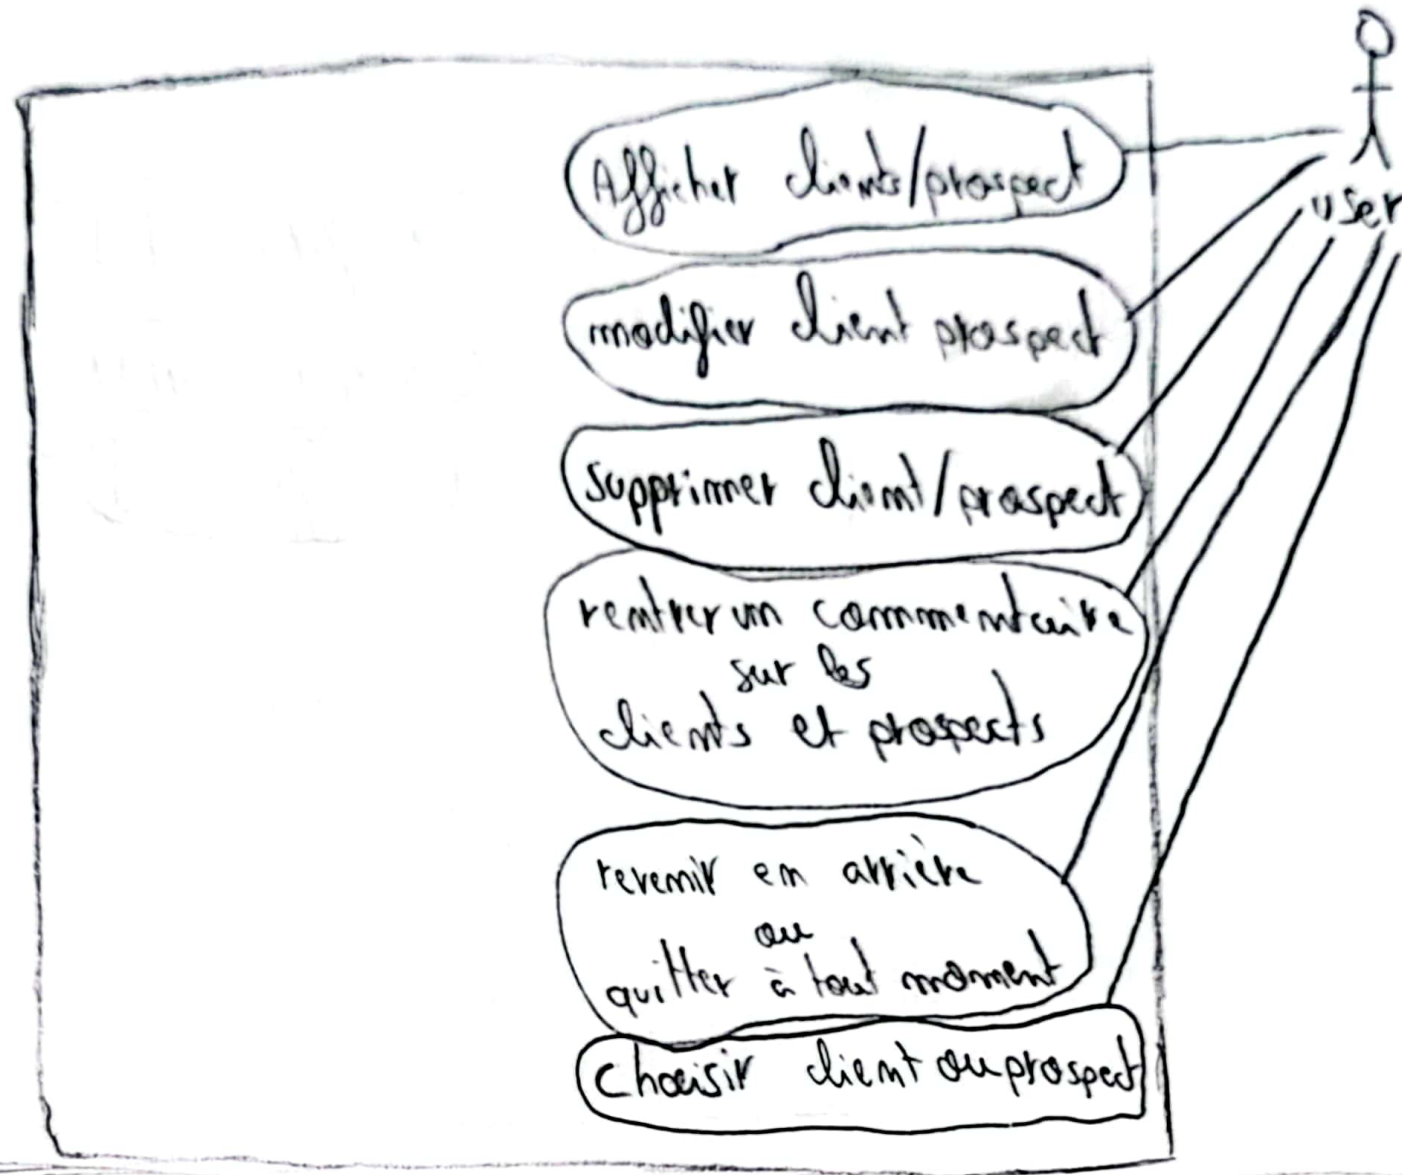 Afficher clients/prospect
user
modifier client prospect
supprimer client/prospect
rentrer un commentaire
sur les
clients et prospects
revenir en arrière
ou
quitter à tout moment
Choisir client ou prospect